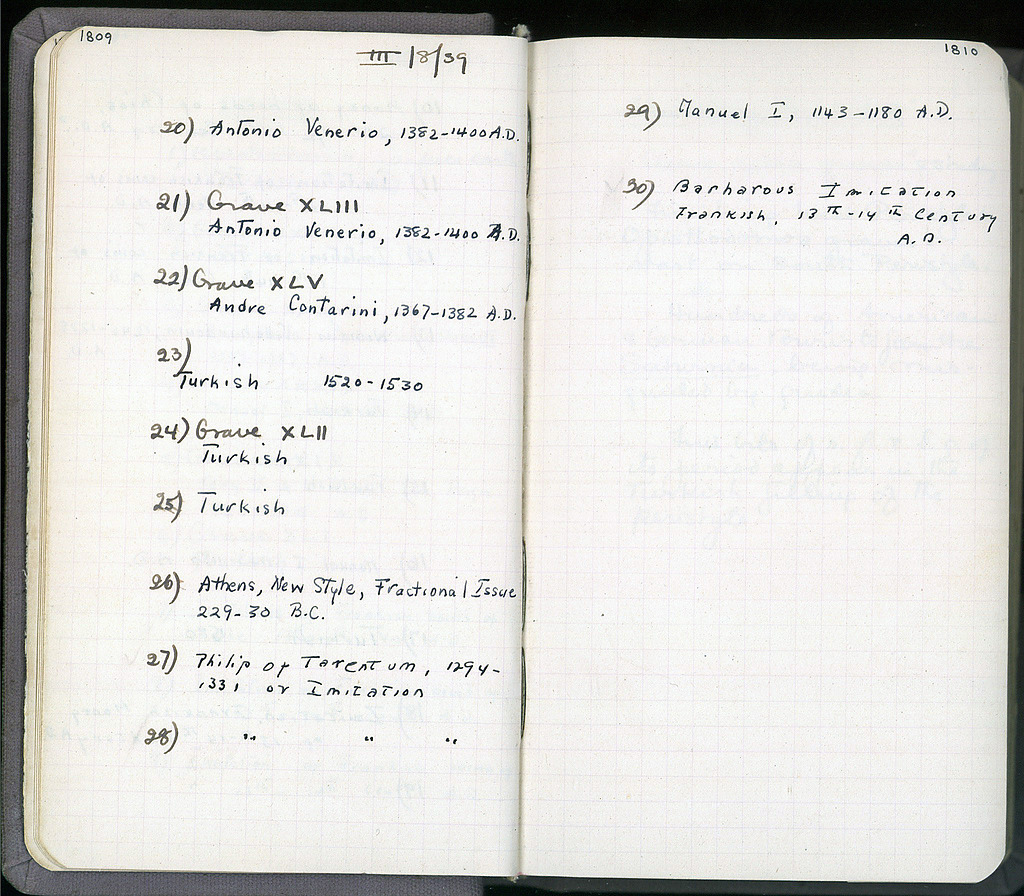 1809
III /8/39
20) Antonio Venerio, 1382-1400 A.D.
21) Grave XLIII
Antonio Venerio, 1382-1400 A.D.
22) Grave XLV
Andre Contarini, 1367-1382 A.D.
23)
Turkish 1520-1530
24) Grave XLII
Turkish
25) Turkish
26) Athens, New Style, Fractional Issue
229-30 B.C.
27) Philip of Tarentum, 1294-
1331 or Imitation
28) " " "
1810
29) Manuel I, 1143-1180 A.D.
30) Barbarous Imitation
Frankish, 13th-14th Century
A.D.